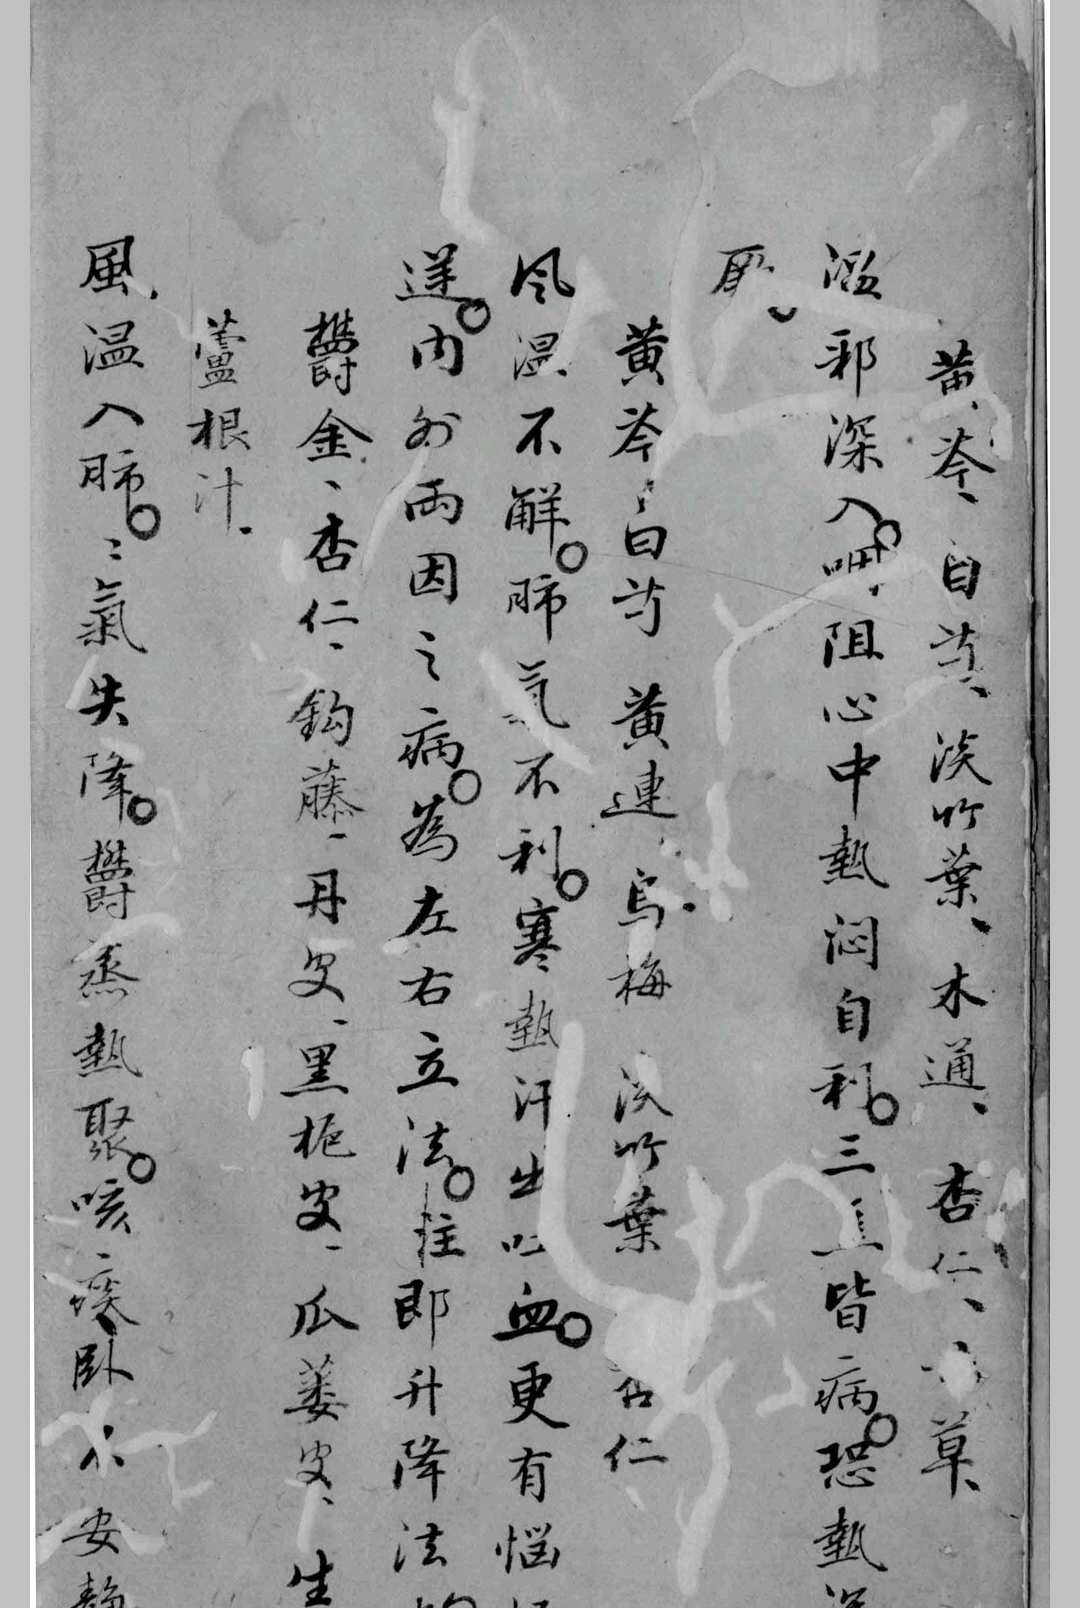 黄芩、白芍、淡竹葉、木通、杏仁、草
温邪深入。呷阻心中熱悶自利。三焦皆病。恐熱深
厥
黄芩白芍黄連烏梅淡竹葉杏仁
风温不解。肺氣不利。寒熱汗出吐血。更有惱
逆。内外兩因之病。為左右立法。柱即升降法
欝金、杏仁、鈎藤、丹皮、黑栀皮、瓜蔞皮、生
蘆根汁
風温入肺。〻氣失降。欝蒸熱聚。咳痰臥不安静